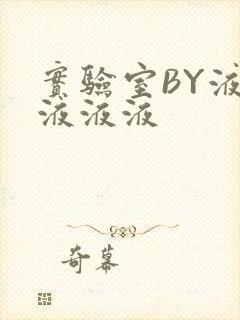 實驗室BY液
液液液
奇幕